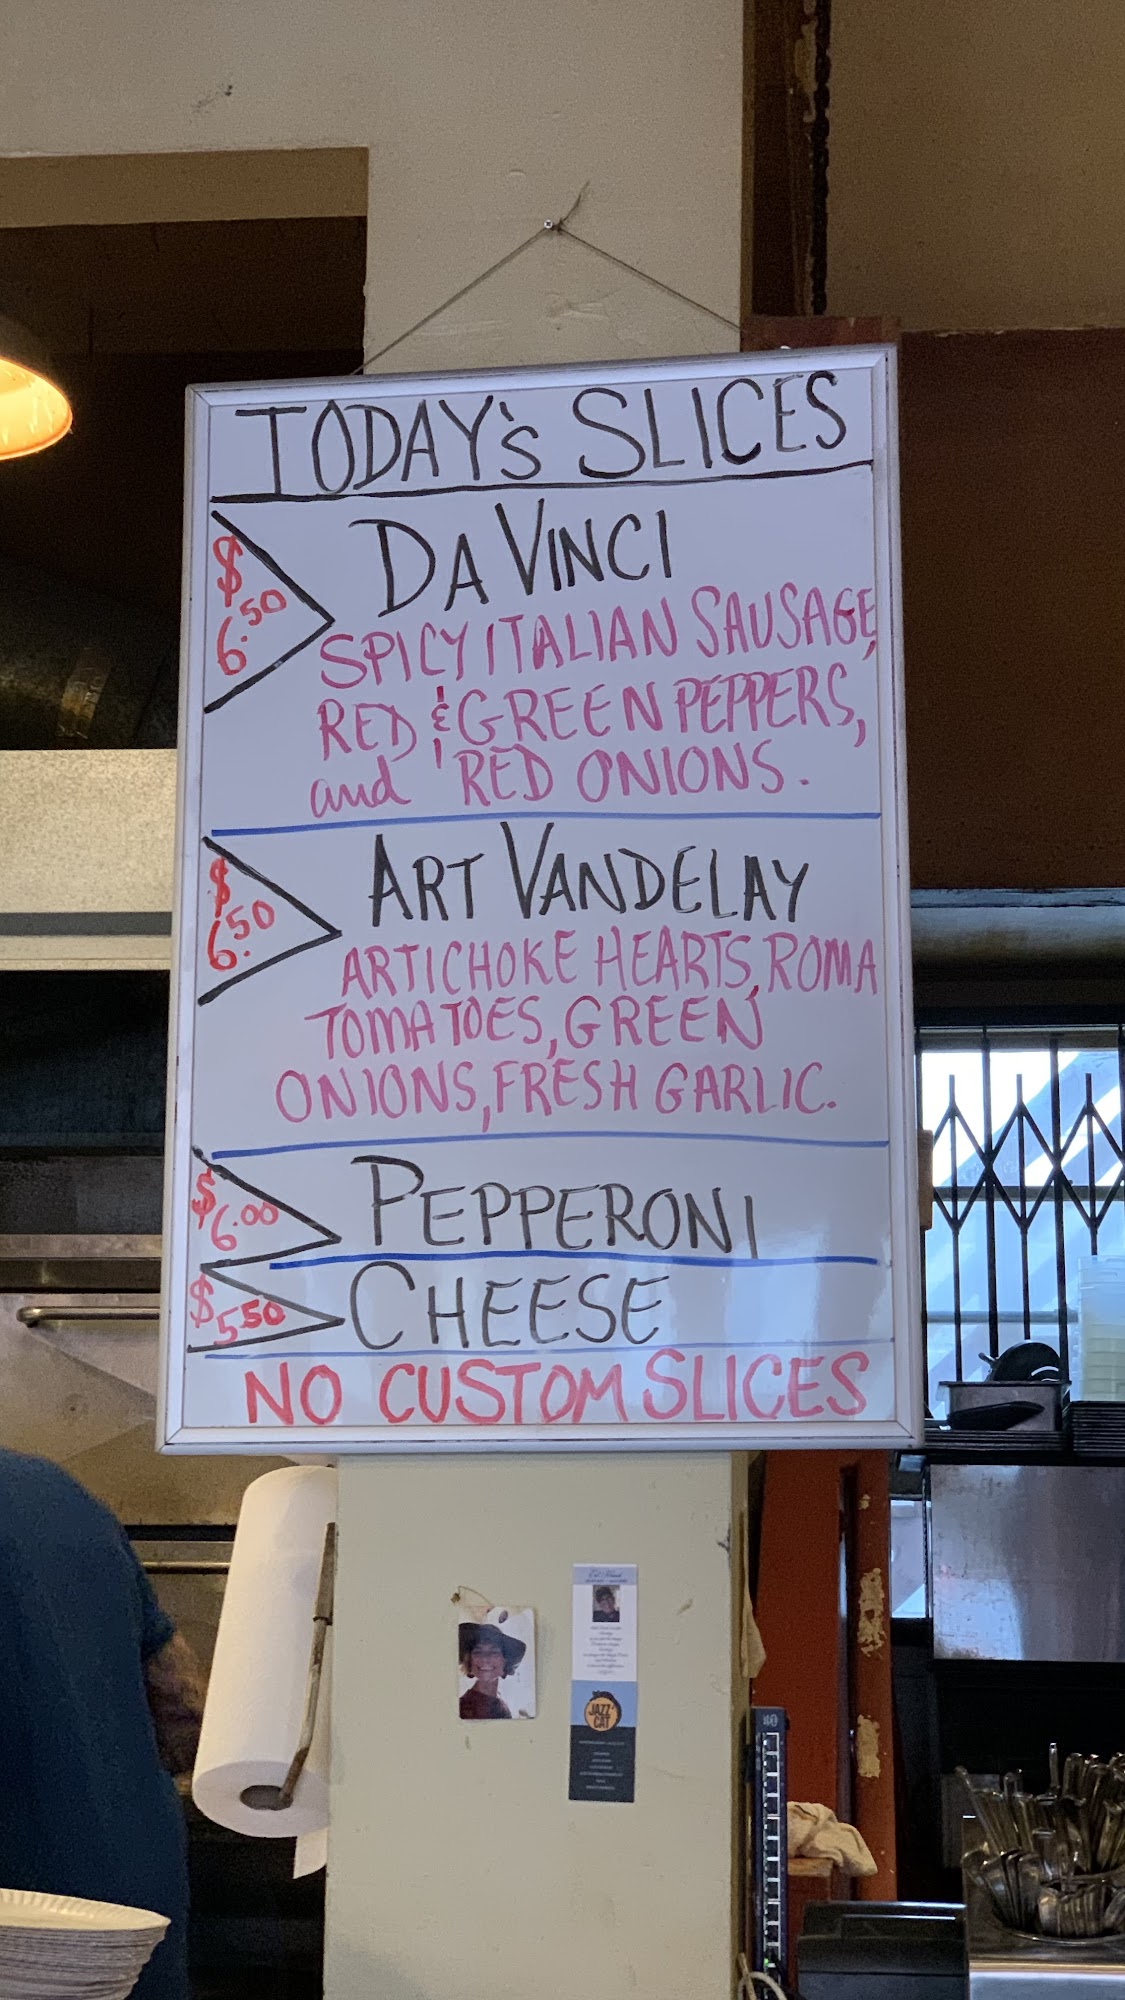 TODAY's SLICES
$6.50
DA VINCI
SPICY ITALIAN SAUSAGE,
RED & GREEN PEPPERS,
and RED ONIONS.
$6.50
ART VANDELAY
ARTICHOKE HEARTS, ROMA
TOMATOES, GREEN
ONIONS, FRESH GARLIC.
$6.00
PEPPERONI
$5.50
CHEESE
NO CUSTOM SLICES
JAZZ
CAT